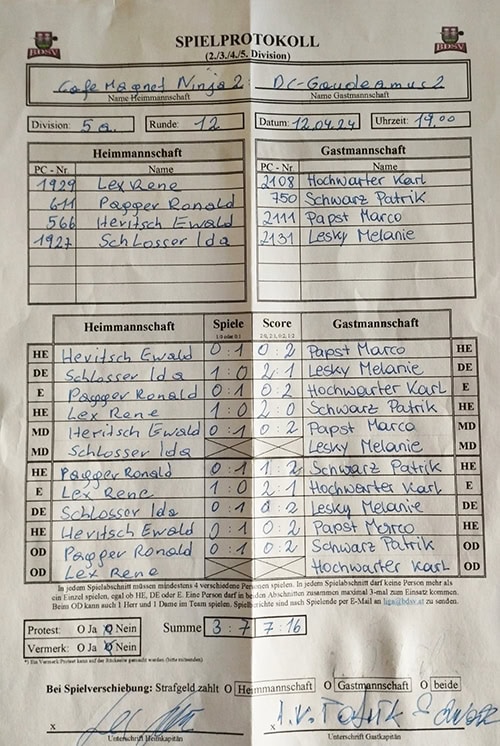 BDSV BDSV
SPIELPROTOKOLL
(2./3./4./5. Division)
Cafe Magnet Ninja 2 : DC-Gaudeamus 2
Name Heimmannschaft Name Gastmannschaft
Division: 5 a. Runde: 12 Datum: 12.04.24 Uhrzeit: 19,00
Heimmannschaft Gastmannschaft
PC - Nr. Name PC - Nr. Name
1929 Lex Rene 2108 Hochwarter Karl
611 Pagger Ronald 750 Schwarz Patrik
566 Heritsch Ewald 2111 Papst Marco
1927 Schlosser Ida 2131 Lesky Melanie
Heimmannschaft Spiele Score Gastmannschaft
1:0 oder 0:1 2:0, 2:1, 0:2, 1:2
HE Heritsch Ewald 0 : 1 0 : 2 Papst Marco HE
DE Schlosser Ida 1 : 0 2 : 1 Lesky Melanie DE
E Pagger Ronald 0 : 1 0 : 2 Hochwarter Karl E
HE Lex Rene 1 : 0 2 : 0 Schwarz Patrik HE
MD Heritsch Ewald 0 : 1 0 : 2 Papst Marco MD
MD Schlosser Ida Lesky Melanie MD
HE Pagger Ronald 0 : 1 1 : 2 Schwarz Patrik HE
E Lex Rene 1 : 0 2 : 1 Hochwarter Karl E
DE Schlosser Ida 0 : 1 0 : 2 Lesky Melanie DE
HE Heritsch Ewald 0 : 1 0 : 2 Papst Marco HE
OD Pagger Ronald 0 : 1 0 : 2 Schwarz Patrik OD
OD Lex Rene Hochwarter Karl OD
In jedem Spielabschnitt müssen mindestens 4 verschiedene Personen spielen. In jedem Spielabschnitt darf keine Person mehr als
ein Einzel spielen, egal ob HE, DE oder E. Eine Person darf in beiden Abschnitten zusammen maximal 3-mal zum Einsatz kommen.
Beim OD kann auch 1 Herr und 1 Dame im Team spielen. Spielberichte sind nach Spielende per E-Mail an liga@bdsv.at zu senden.
Protest: O Ja O Nein Summe 3 : 7 7 : 16
Vermerk: O Ja O Nein
*) Ein Vermerk/Protest kann auf der Rückseite gemacht werden. (bitte ankreuzen)
Bei Spielverschiebung: Strafgeld zahlt O Heimmannschaft O Gastmannschaft O beide
x x
Unterschrift Heimkapitän Unterschrift Gastkapitän